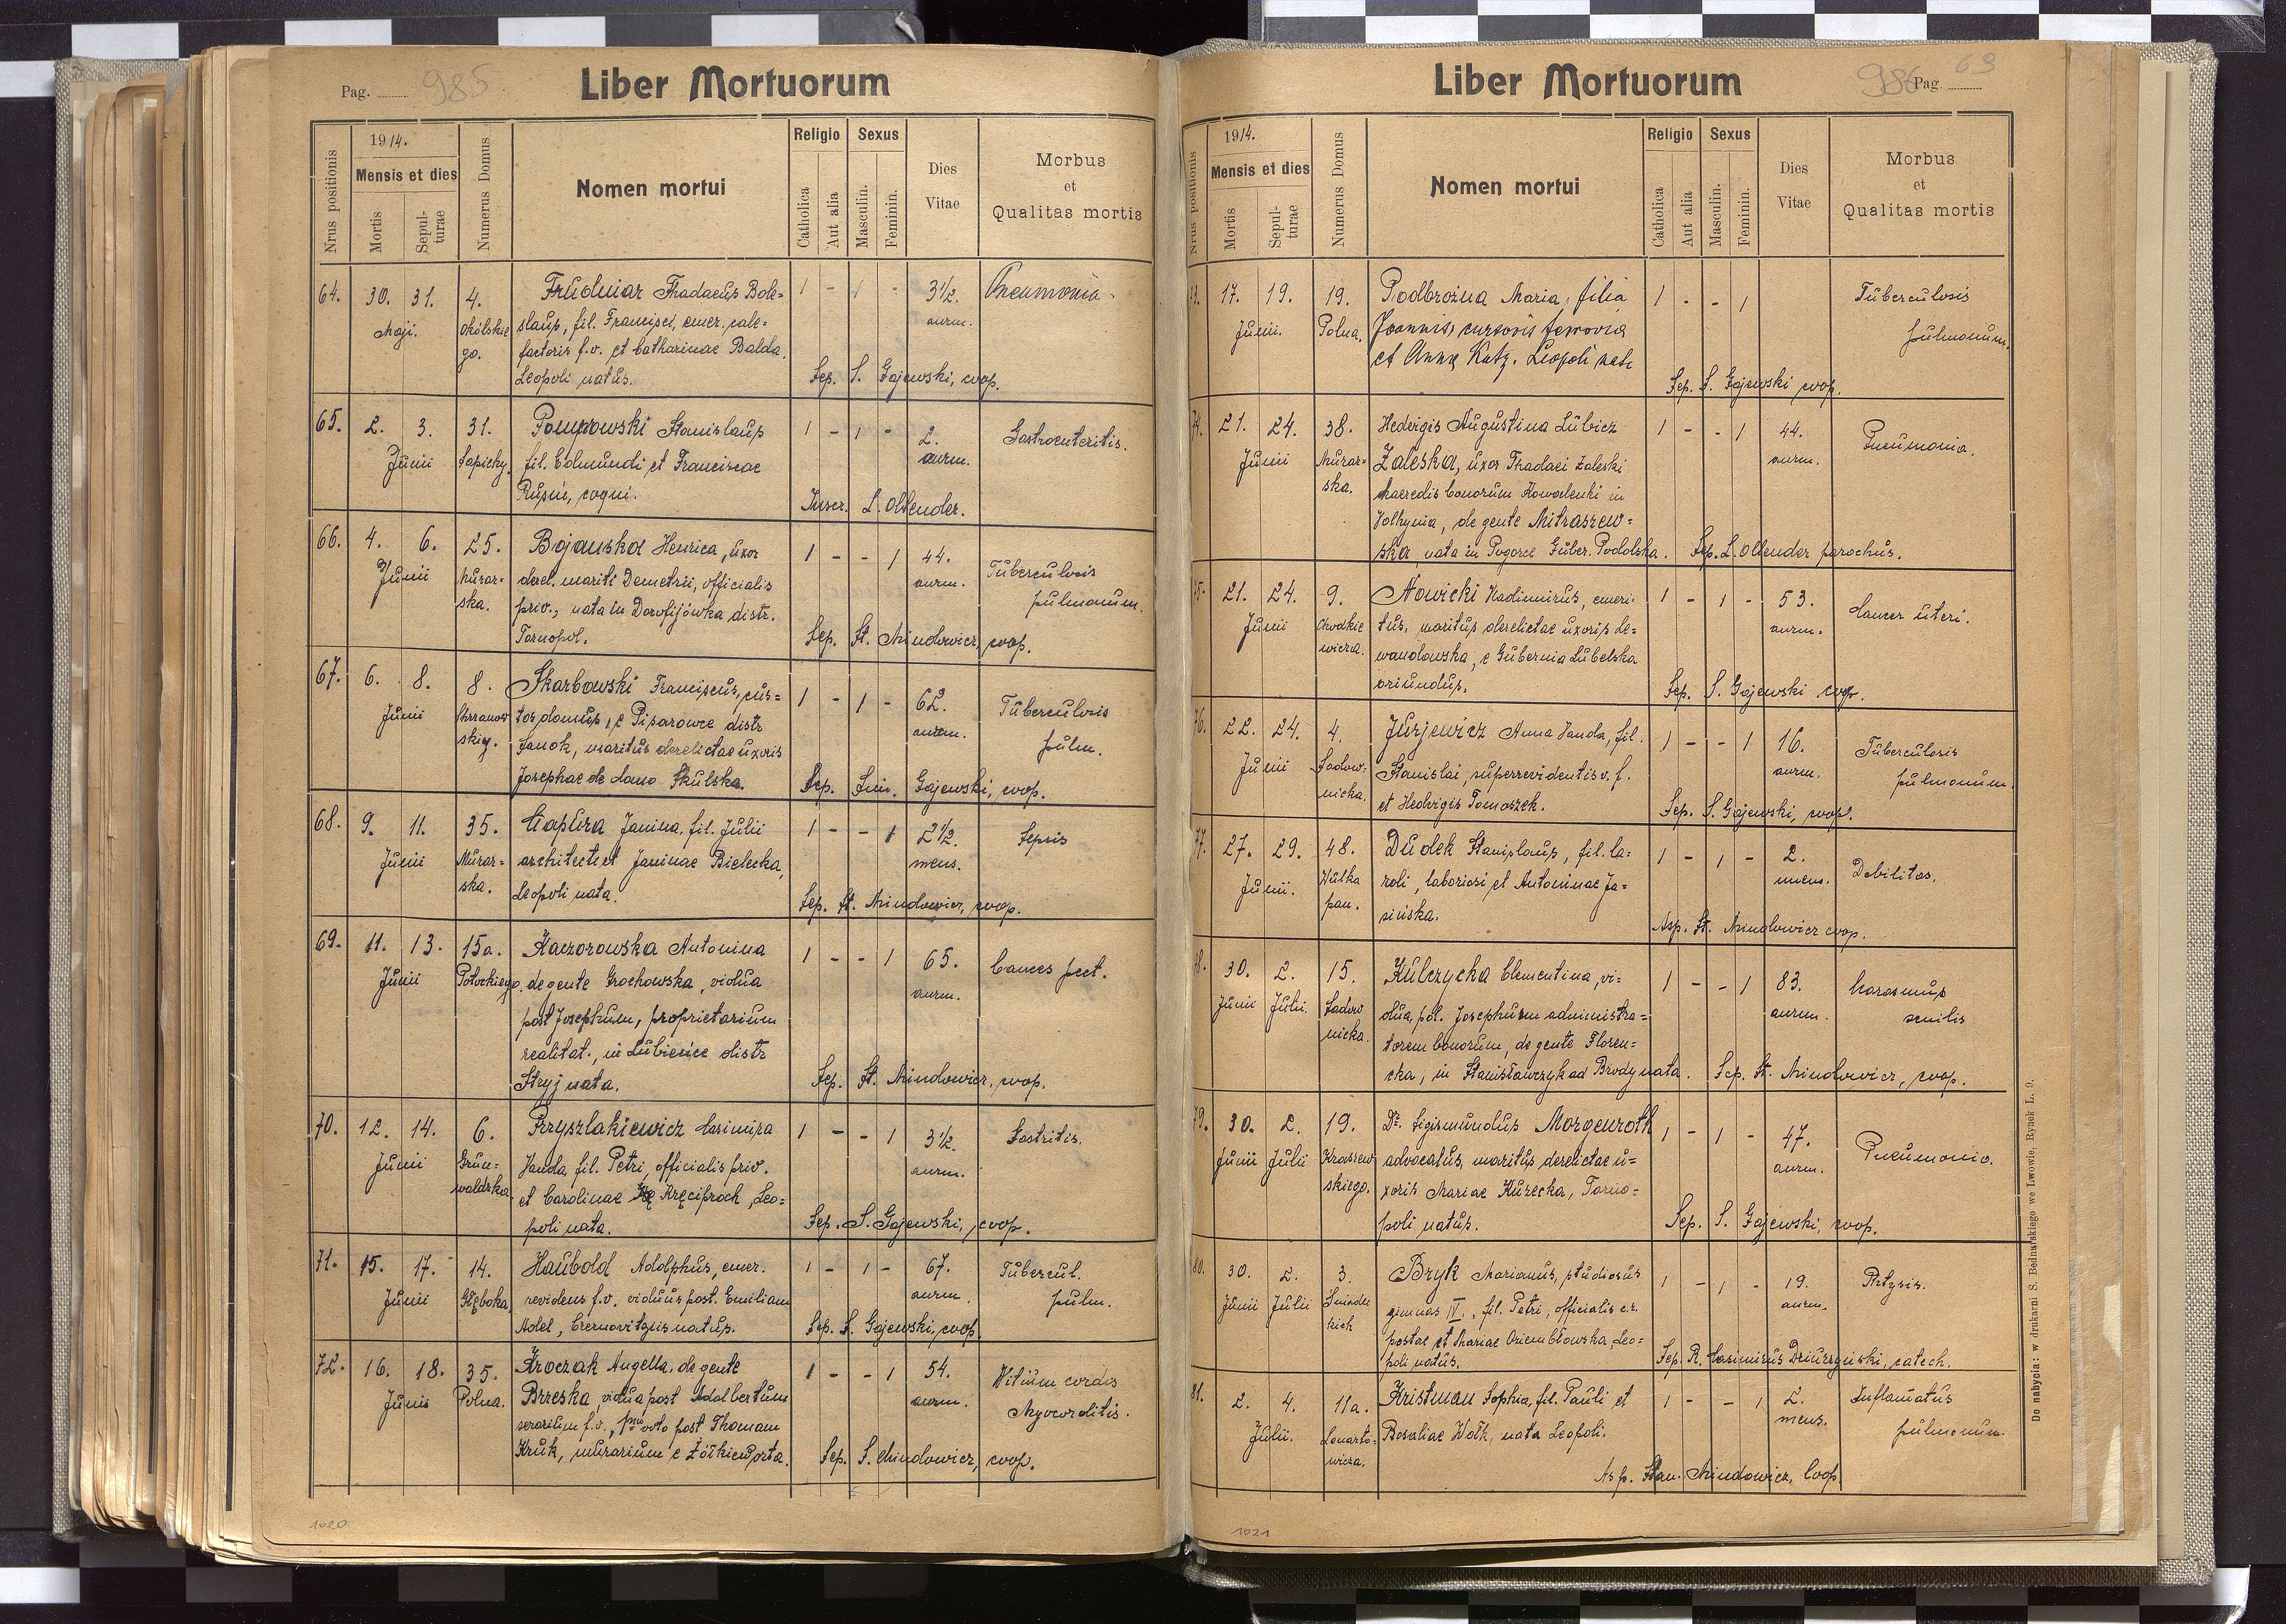 Pag. 985
Liber Mortuorum
Nrus positionis
1914.
Mensis et dies
Mortis
Sepulturae
Numerus Domus
Nomen mortui
Religio
Catholica
Aut alia
Sexus
Masculin.
Feminin.
Dies Vitae
Morbus et Qualitas mortis
64. 30. 31. 4. Frudniar Thadaeus Bole= 1 - 1 - 3½. Pneumonia.
Maji. slaus, fil. Francisci, emer. cale= annor.
go. factoris f.v. et Catharinae Balda,
Leopoli natus. Sep. S. Gajewski, coop.
65. 2. 3. 31. Pompowski Stanislaus 1 - 1 - 2. Gastroenteritis.
Junii Sapiehy. fil. Edmundi et Franciscae annor.
Rusin, coqui. Inscr. L. Ollender.
66. 4. 6. 25. Bojanska Henrica, uxor 1 - - 1 44. Tuberculosis
Junii Murar= derel. mariti Demetrii, officialis annor. pulmonum.
ska. priv., nata in Dorofijówka distr.
Tarnopol. Sep. St. Mindowicz, coop.
67. 6. 8. 8. Skarbowski Franciscus, cus= 1 - 1 - 62. Tuberculosis
Junii Chrzanow tos domus, e Pisarowce distr annor. pulm.
skiej. Sanok, maritus derelictae uxoris
Josephae de domo Skulska. Sep. Sim. Gajewski, coop.
68. 9. 11. 35. Janina, fil. Julii 1 - - 1 2½. Sepsis
Junii Murar= architecti et Janinae Bielecka, mens.
ska. Leopoli nata. Sep. St. Mindowicz, coop.
69. 11. 13. 15a. Kaczorowska Antonina 1 - - 1 65. Cancer pect.
Junii Potockiego. de gente Grochowska, vidua annor.
post Josephum, proprietarium
realitat., in Lubience distr
Stryj nata. Sep. St. Mindowicz, coop.
70. 12. 14. 6. Przyszlakiewicz Casimira 1 - - 1 3½. Gastritis.
Junii Grün= Vanda fil. Petri, officialis priv. annor.
waldzka. et Carolinae Kręciproch, Leo=
poli nata. Sep. S. Gajewski, coop.
71. 15. 17. 14. Haubold Adolphus, emer. 1 - 1 - 67. Tubercul.
Junii Głęboka revidens f.v. viduus post. Emiliam annor. pulm.
Adel, Czernovitziis natus. Sep. S. Gajewski, coop.
72. 16. 18. 35. Kroczak Angella, de gente 1 - - 1 54. Vitium cordis
Junii Polna. Brzeska, vidua post Adalbertum annor. Myocarditis.
f.v., voto post Thomam
Kruk, murarium e Żółkiew orta. Sep. S. Mindowicz, coop.
1020
Liber Mortuorum
986 Pag. 63
Nrus positionis
1914.
Mensis et dies
Mortis
Sepulturae
Numerus Domus
Nomen mortui
Religio
Catholica
Aut alia
Sexus
Masculin.
Feminin.
Dies Vitae
Morbus et Qualitas mortis
73. 17. 19. 19. Podbrożna Maria, filia 1 - - 1 Tuberculosis
Junii. Polna. Joannis, cursoris ferrovia pulmonum.
et Annę Katz. Leopoli nate
Sep. S. Gajewski coop.
74. 21. 24. 38. Hedvigis Augustina Lubicz 1 - - 1 44. Pneumonia.
Junii Murar= Zaleska, uxor Thadaei Zaleski annor.
ska. haeredis bonorum Kowalenki in
Volhynia, de gente Mitraszew=
ska, nata in Pogorce Guber. Podolska. Sep. L. Ollender parochus.
75. 21. 24. 9. Nowicki Vladimirus, emeri- 1 - 1 - 53. Cancer uteri.
Junii Chodkie tus, maritus derelictae uxoris Le= annor.
wicza. wandowska, e Gubernia Lubelska
oriundus. Sep. S. Gajewski coop.
76. 22. 24. 4. Jurjewicz Anna Vanda, fil. 1 - - 1 16. Tuberculosis
Junii Sadow- Stanislai, superrevidentis v. f. annor. pulmonum.
nicka. et Hedvigis Tomaszek. Sep. S. Gajewski, coop.
77. 27. 29. 48. Dudek Stanislaus, fil. Ca= 1 - 1 - 2. Debilitas.
Junii. Wulka roli, laboriosi et Antoninae Ja= mens.
pan. sińska. Asp. St. Mindowicz coop.
78. 30. 2. 15. Kulczycka Clementina, vi= 1 - - 1 83. Marasmus
Junii Julii Sadow dua, p. Josephum administra= annor. senilis
nicka. torem bonorum, de gente Floren=
cka, in Stanisławczyk ad Brody nata. Sep. St. Mindowicz, coop.
79. 30. 2. 19. Dr. Sigismundus Morgenroth 1 - 1 - 47. Pneumonia.
Junii Julii Kraszew advocatus, maritus derelictae u= annor.
skiego. xoris Mariae Kurecka, Tarno=
poli natus. Sep. S. Gajewski, coop.
80. 30. 2. 3. Bryk Marianus, studiosus 1 - 1 - 19. Phtysis.
Junii Julii gimnas IV., fil. Petri, officialis c.r. annor.
postae et Mariae Oziembłowska, Leo=
poli natus. Sep. R. Casimirus catech.
81. 2. 4. 11a. Kristman Sophia, fil. Pauli et 1 - - 1 2. Inflamatus
Julii. Lenarto= Rosaliae Wołk, nata Leopoli. mens. pulmonum.
wicza.
Asp. Stan. Mindowicz, Coop
1021
Do nabycia: w drukarni S. Bednarskiego we Lwowie, Rynek L. 9.